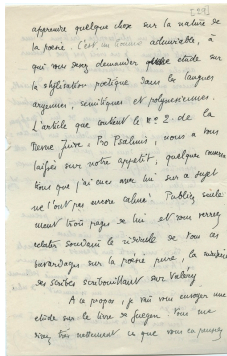 [29]
apprendre quelque chose sur la nature de
la poésie. C'est un homme admirable, à
qui vous devez demander une étude sur
la stylisation poétique dans les langues
aryennes, sémitiques et polynésiennes.
L'article que contient le n° 2 de la
Revue Juive : Pro Psalmis, nous a tous
laissés sur notre appétit, quelques conversa
tions que j'ai eues avec lui sur ce sujet
ne l'ont pas encore calmé. Publiez seule
ment trois pages de lui et vous verrez
éclater soudain le ridicule de tous ces
bavardages sur la poésie pure, la
des scribes scribouillant sur Valéry
A ce propos, je vais vous envoyer une
étude sur le livre de Guéguen. Vous me
direz très nettement ce que vous en pensez